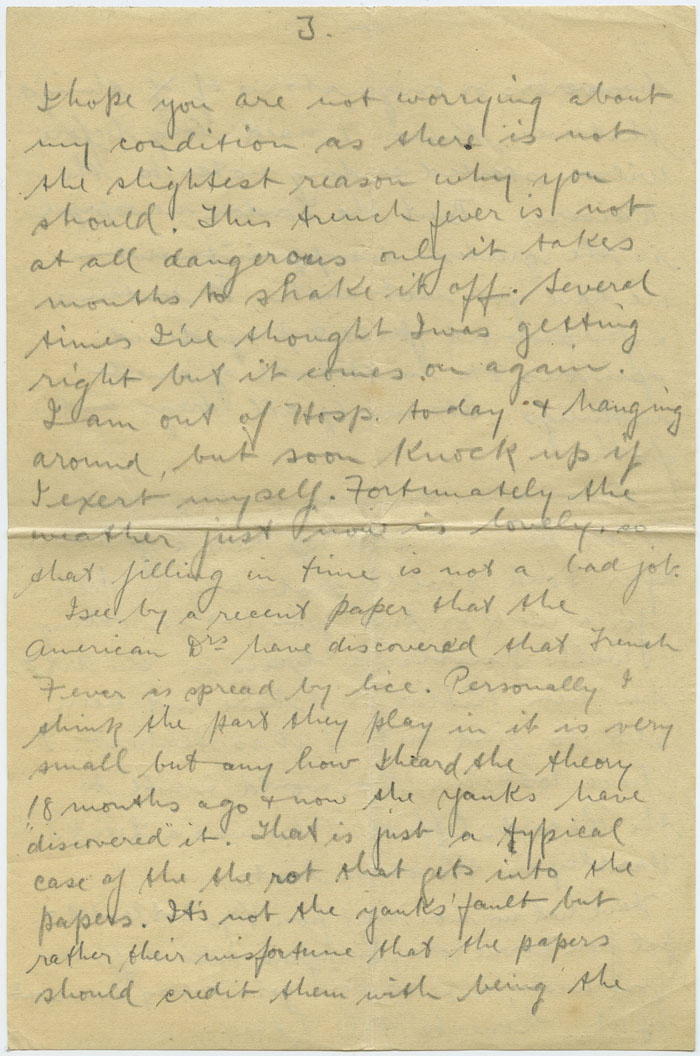 3.
I hope you are not worrying about
my condition as there is not
the slightest reason why you
should. This trench fever is not
at all dangerous only it takes
months to shake it off. Several
times I've thought I was getting
right but it comes on again.
I am out of Hosp. today & hanging
around, but soon knock up if
I exert myself. Fortunately the
weather just now is lovely, so
that filling in time is not a bad job.
I see by a recent paper that the
American Drs have discovered that Trench
Fever is spread by lice. Personally I
think the part they play in it is very
small but any how I heard the theory
18 months ago & now the Yanks have
"discovered" it. That is just a typical
case of the the rot that gets into the
papers. It's not the Yanks' fault but
rather their misfortune that the papers
should credit them with being the